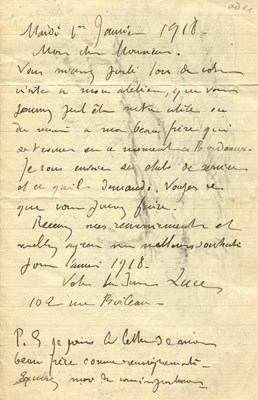 Mardi 1er Janvier 1918.
Mon cher Monsieur.
Vous m'aviez parlé lors de votre
visite à mon atelier, que vous
pourriez peut être m'être utile ou
du moins à mon beau frère qui
se trouve en ce moment à Bordeaux.
Je vous envoie ses états de service
et ce qu'il demande. Voyez ce
que vous pouvez faire.
Recevez mes remerciements et
veuillez agréer mes meilleurs souhaits
pour l'année 1918.
Votre Luce
102 rue Boileau.
P.S je joins la lettre de mon
beau frère comme renseignements.